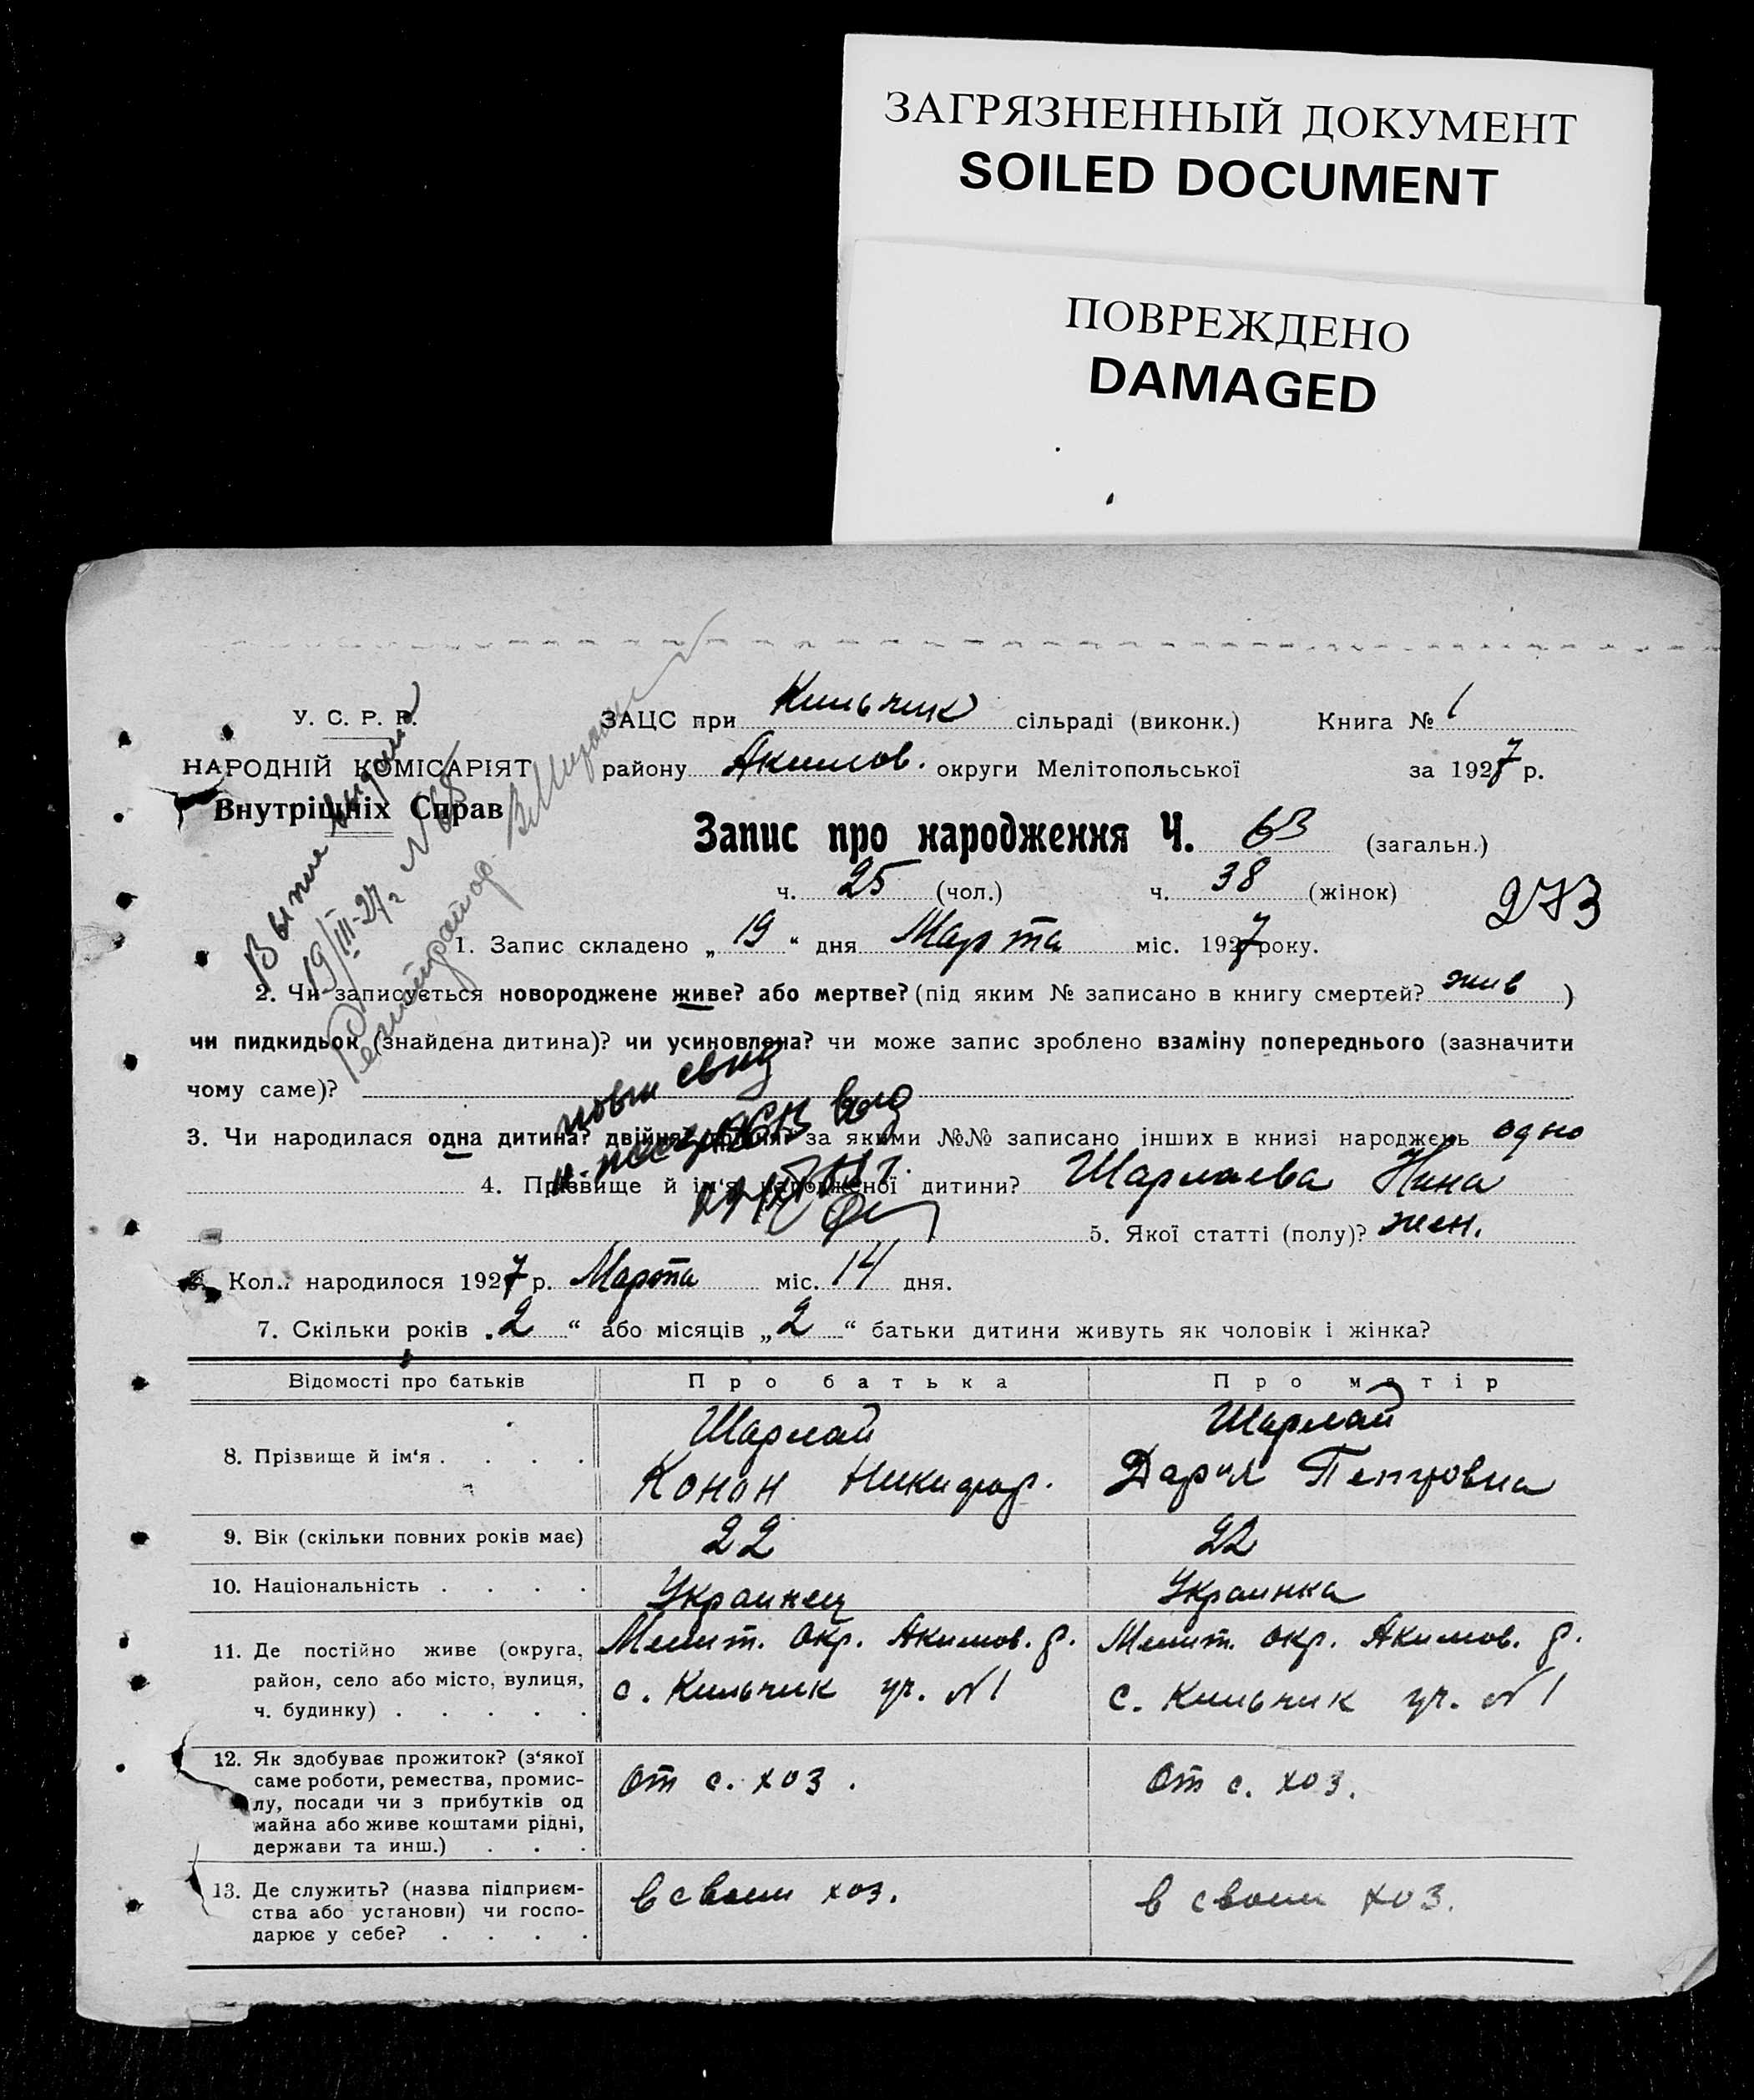 ЗАГРЯЗНЕННЫЙ ДОКУМЕНТ
SOILED DOCUMENT
ПОВРЕЖДЕНО
DAMAGED
У. С. Р. Р.
НАРОДНІЙ КОМІСАРІЯТ
Внутрішніх Справ
ЗАЦС при Кильчик сільраді (виконк.) Книга № 1
району Акимов. округи Мелітопольської за 1927 р.
Запис про народження Ч. 63 (загальн.)
ч. 25 (чол.) ч. 38 (жінок)
273
Выпис выдана
19/III-27 г. № 68
1. Запис складено „ 19 “ дня Марта міс. 1927 року.
2. Чи записується новороджене живе? або мертве? (під яким № записано в книгу смертей? жив )
чи пидкидьок (знайдена дитина)? чи усиновлена? чи може запис зроблено взаміну попереднього (зазначити
чому саме)?
3. Чи народилася одна дитина? двійня? за якими №№ записано інших в книзі народжень одно
4. Прізвище й ім'я народженої дитини? Шармаева Нина
5. Якої статті (полу)? жен.
6. Коли народилося 1927 р. Марта міс. 14 дня.
7. Скільки років „ 2 “ або місяців „ 2 “ батьки дитини живуть як чоловік і жінка?
Відомості про батьків Про батька Про матір
8. Прізвище й ім'я . . . . . Шармай Конон Никифор. Шармай Дарья Петровна
9. Вік (скільки повних років має) 22 22
10. Національність . . . . Украинец Украинка
11. Де постійно живе (округа, Мелит. окр. Акимов. р. Мелит. окр. Акимов. р.
район, село або місто, вулиця, с. Кильчик ул. №1 с. Кильчик ул. №1
ч. будинку) . . . . .
12. Як здобуває прожиток? (з'якої
саме роботи, ремества, промис- От с. хоз. От с. хоз.
лу, посади чи з прибутків од
майна або живе коштами рідні,
держави та инш.) . . .
13. Де служить? (назва підприєм- в своем хоз. в своем хоз.
ства або установи) чи госпо-
дарює у себе? . . . .